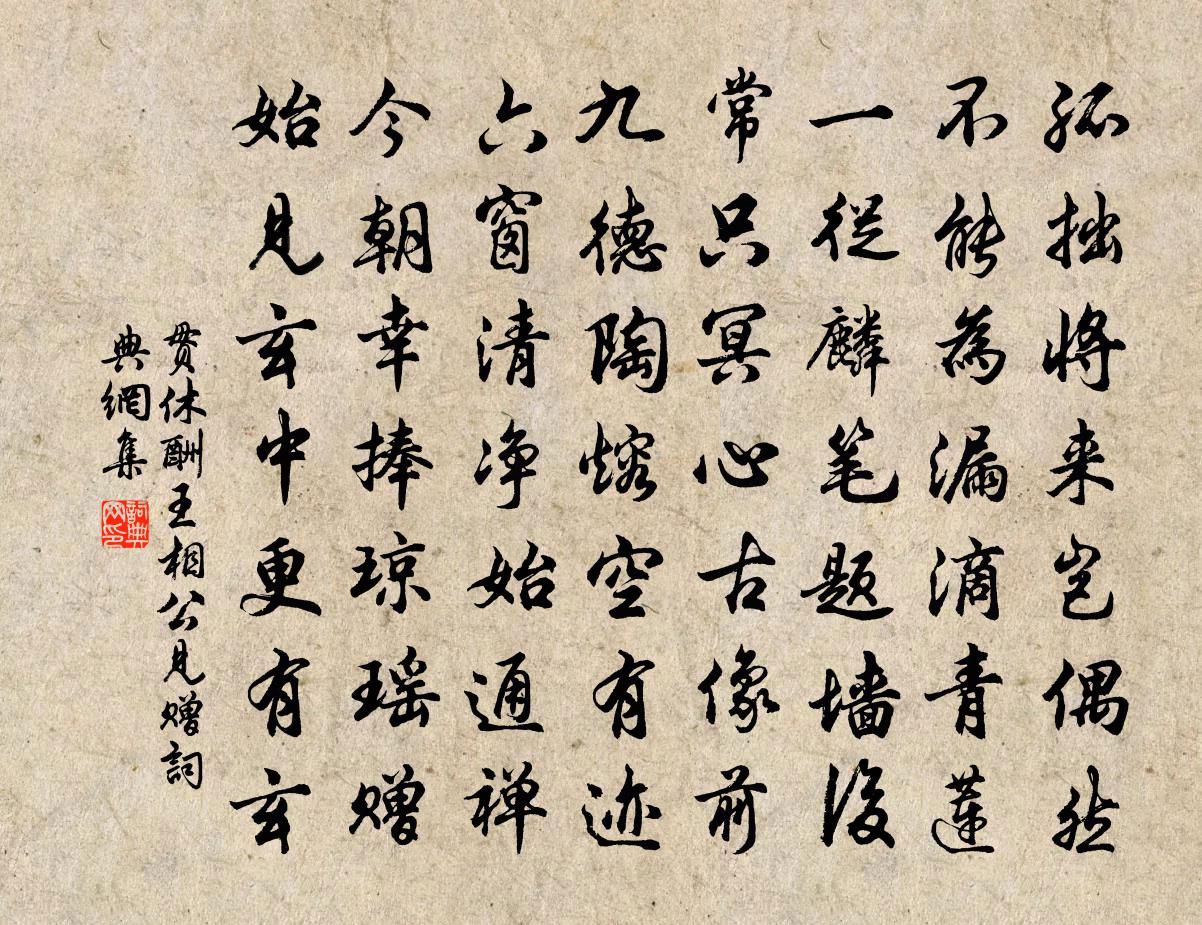 孤拙将来岂偶然
不能為漏滴青蓮
一從麟笔题墙後
常只冥心古像前
九德陶熔空有迹
六窗清净始通禅
今朝幸捧琼瑶赠
始見玄中更有玄
贯休酬王相公見赠詞
典網集
詞典
网印